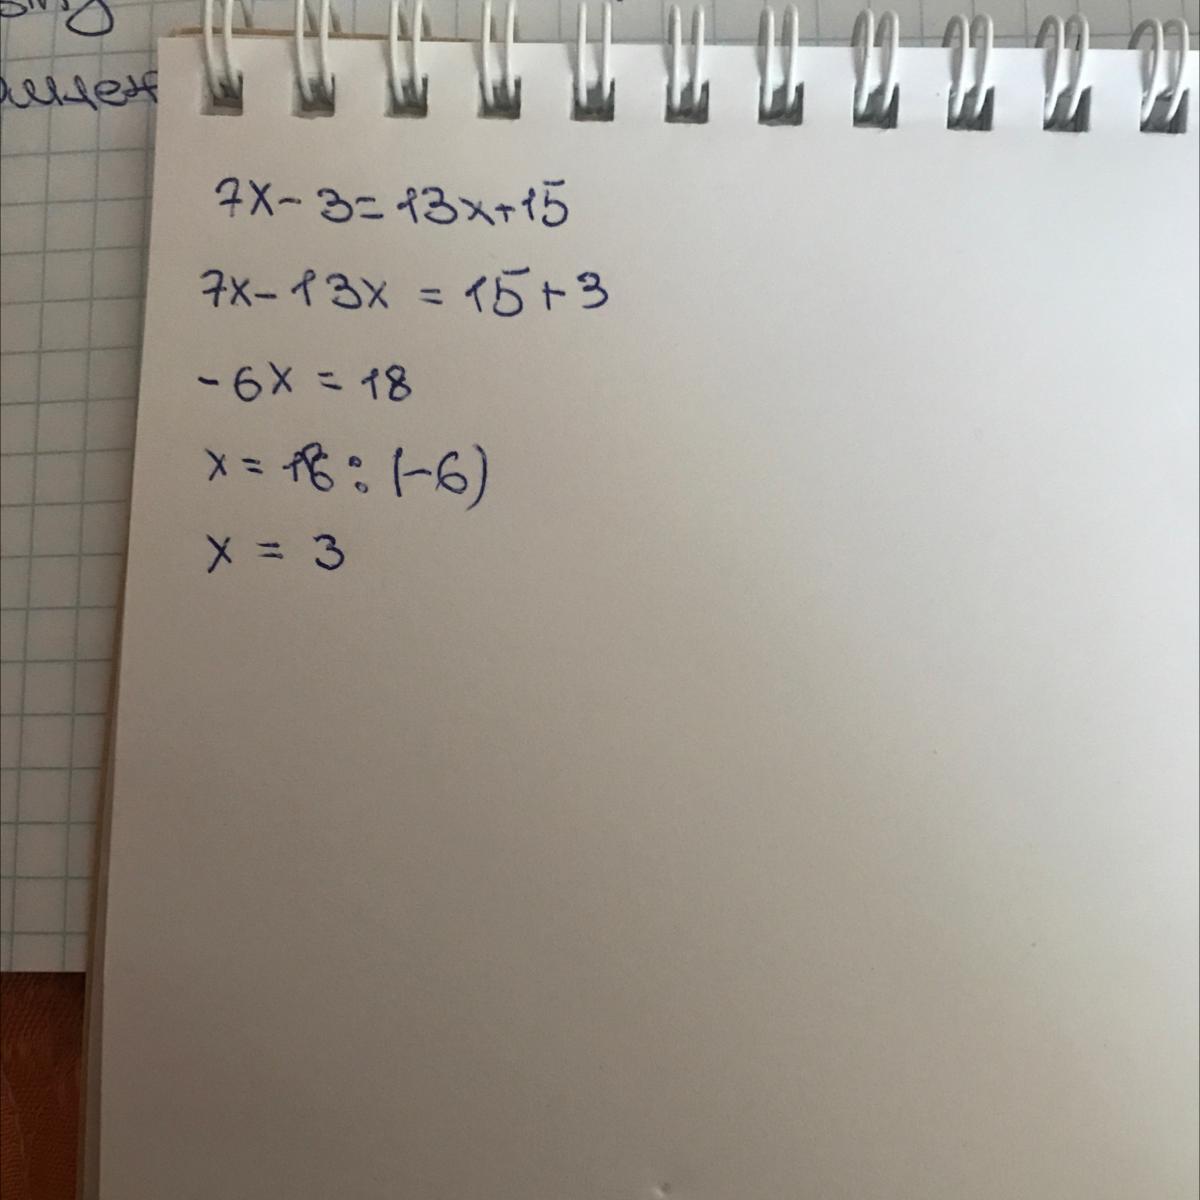 7x - 3 = 13x + 15
7x - 13x = 15 + 3
-6x = 18
x = 18 : (-6)
x = 3